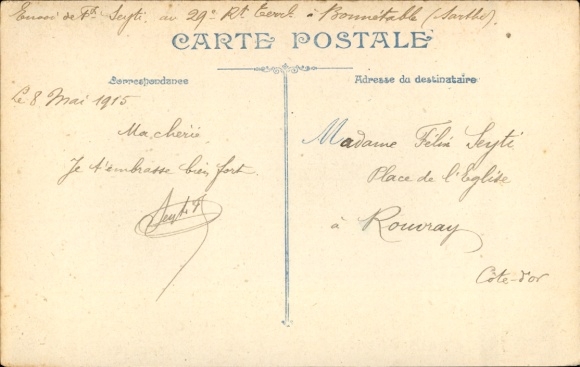 Envoi de Fx Seyti au 29e Rt terr. à Bonnétable (Sarthe)
CARTE POSTALE
Correspondance
Adresse du destinataire
Le 8 Mai 1915
Ma chérie
Je t'embrasse bien fort.
Seyti F
Madame Félix Seyti
Place de l'Eglise
à Rouvray
Côte-d'or